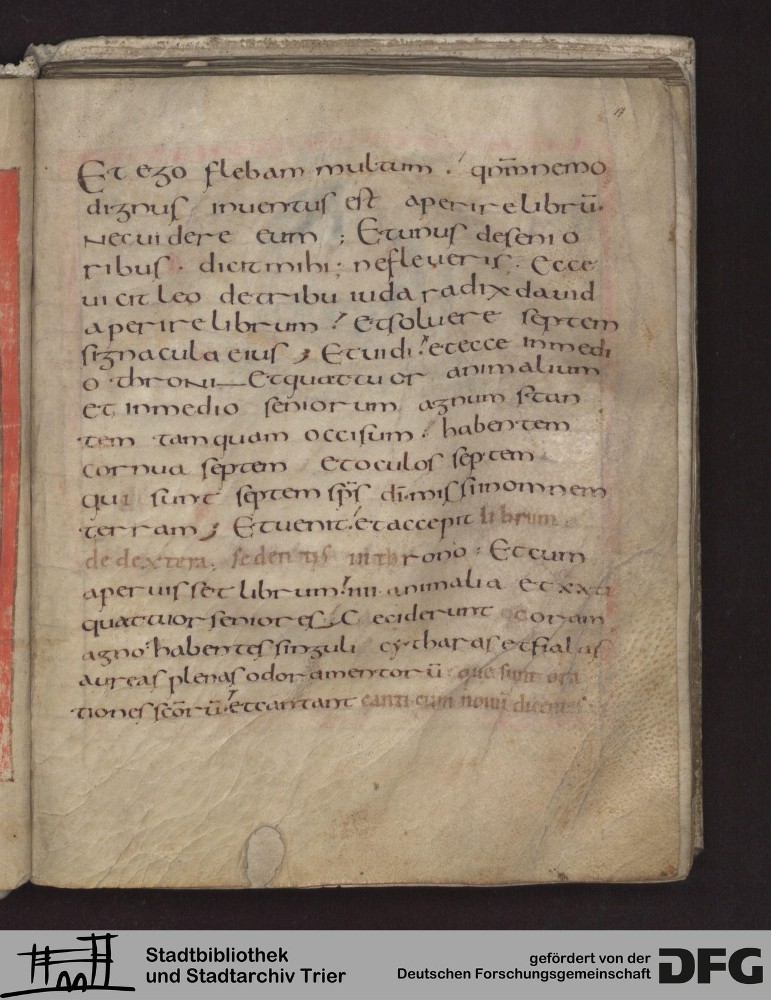 Et ego flebam multum . qnm̄ nemo
dignus inventus est aperire librū.
Nec uidere eum ; Et unus de senio
ribus . dicit mihi ; ne fleveris . Ecce
uicit leo de tribu iuda radix dauid
aperire librum ! Et soluere septem
signacula eius ; Et uidi ! et ecce in medi
o throni Et quattuor animalium
et in medio seniorum agnum stan
tem tamquam occisum . habentem
cornua septem et oculos septem
qui sunt septem sp̄s dī . missi in omnem
terram ; Et uenit . et accepit librum
de dextera sedentis in throno : Et cum
aperuisset librum ! iiii animalia et xx ti
quattuor seniores Ceciderunt coram
agno . habentes singuli cytharas et fialas
aureas plenas odoramentorū que sunt ora
tiones sc̄orū . et cantant canticum nouū dicentes
Stadtbibliothek
und Stadtarchiv Trier
gefördert von der
Deutschen Forschungsgemeinschaft
DFG